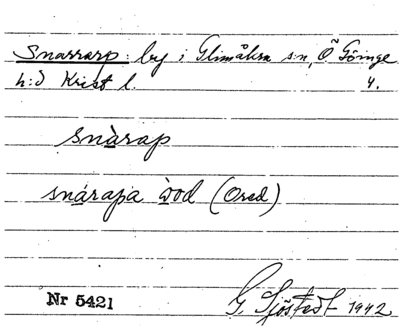 Snarrarp: by i Glimåkra s:n, Ö Göinge
h:d Krist l. 4.
snàrap
snárapa òod (Ored)
Nr 5421
G. Sjöstedt 1942